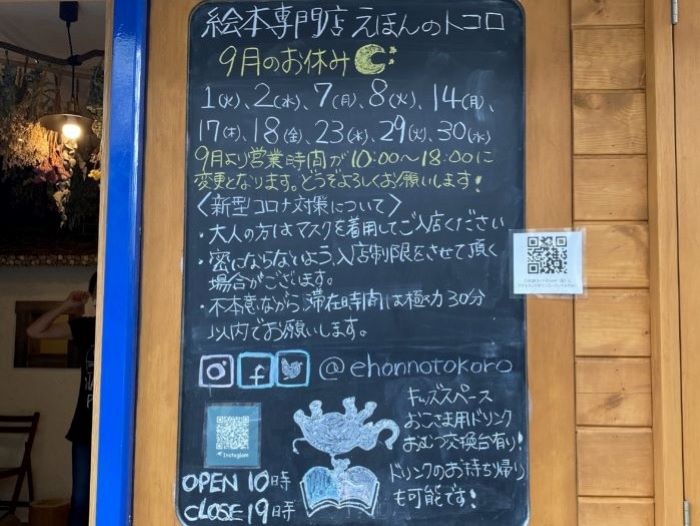 絵本専門店えほんのトコロ
9月のお休み
1(火)、2(水)、7(月)、8(火)、14(月)、
17(木)、18(金)、23(水)、29(火)、30(水)
9月より営業時間が10:00〜18:00に
変更となります。どうぞよろしくお願いします!
〈新型コロナ対策について〉
・大人の方はマスクを着用してご入店ください
・密にならないよう、入店制限をさせて頂く
場合がございます。
・不本意ながら、滞在時間は極力30分
以内でお願いします。
@ehonnotokoro
キッズスペース
おこさま用ドリンク
おむつ交換台有り!
ドリンクのお持ち帰り
も可能です!
Instagram
OPEN 10時
CLOSE 19時